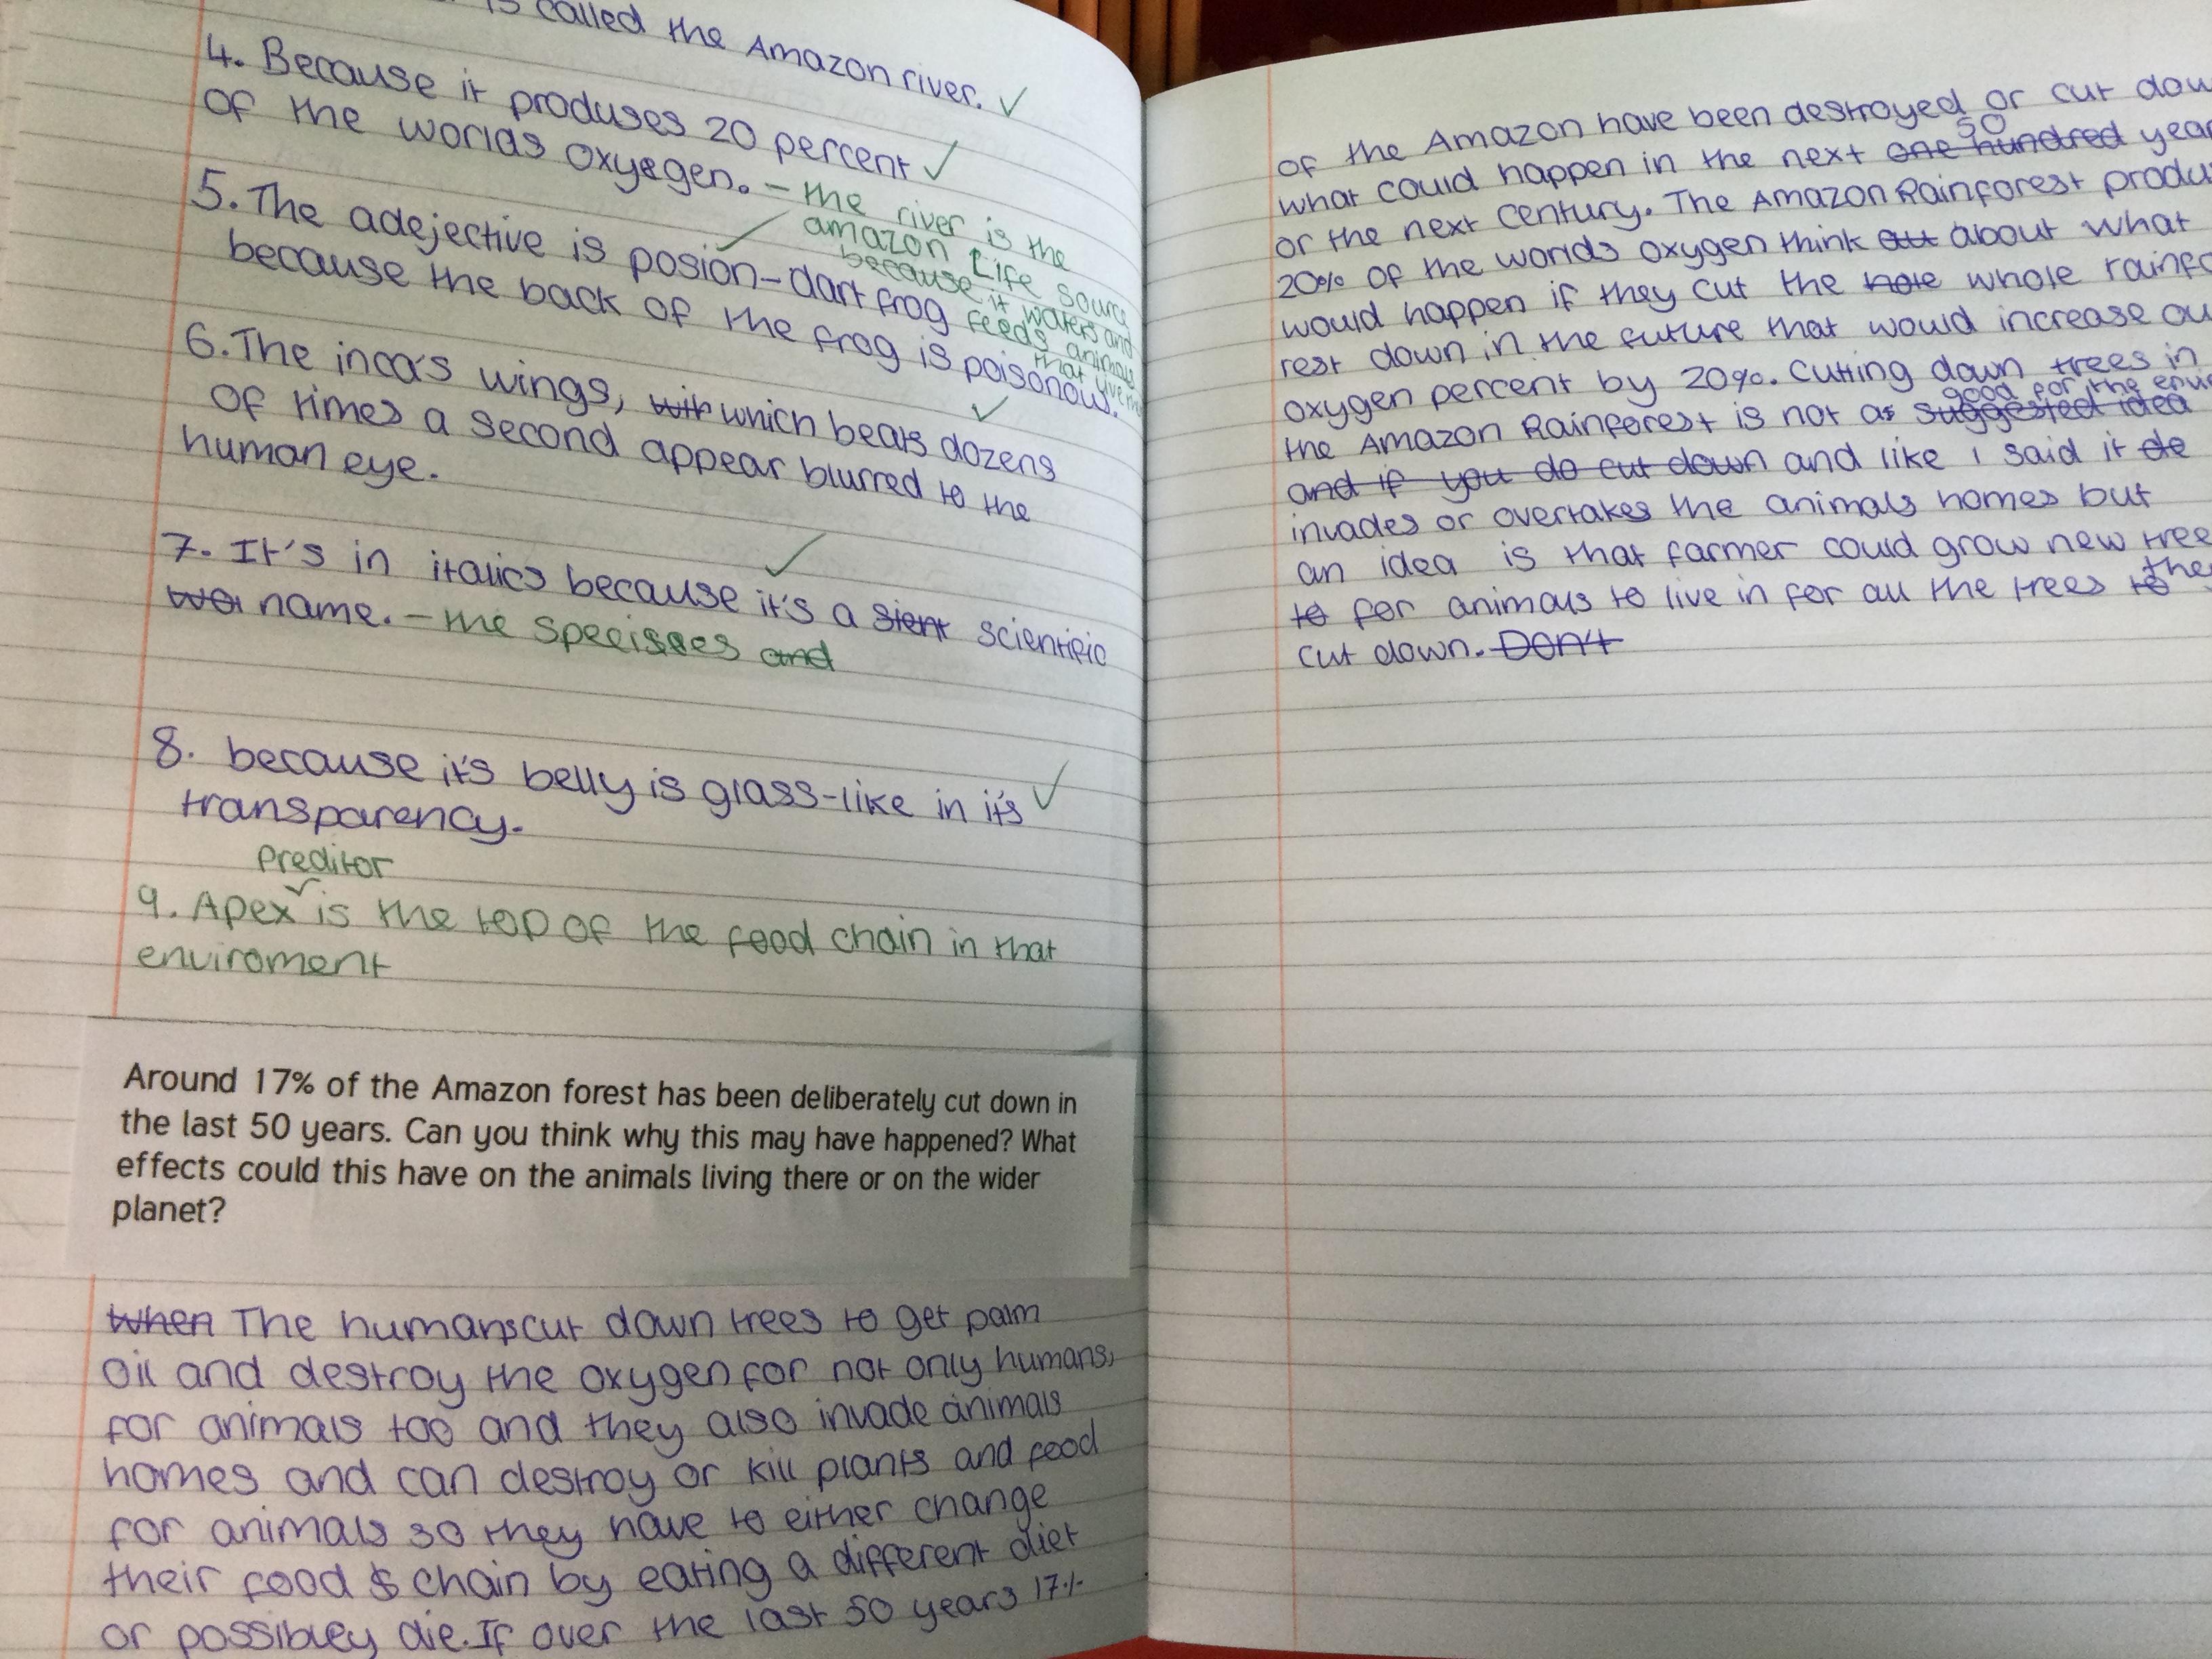 is called the Amazon river.
4. Because it produses 20 percent
of the worlds oxyegen. - the river is the
amazon Life source
because it waters and
feeds animals
that live there
5. The adejective is posion-dart frog
because the back of the frog is poisonous.
6. The inca's wings, with which beats dozens
of times a second appear blurred to the
human eye.
7. It's in italics because it's a sient scientific
wor name. - the speciesses and
8. because it's belly is glass-like in it's
transparency.
Preditor
9. Apex is the top of the food chain in that
enviroment
Around 17% of the Amazon forest has been deliberately cut down in
the last 50 years. Can you think why this may have happened? What
effects could this have on the animals living there or on the wider
planet?
When The humans cut down trees to get palm
oil and destroy the oxygen for not only humans,
for animals too and they also invade animals
homes and can destroy or kill plants and food
for animals so they have to either change
their food s chain by eating a different diet
or possibley die. If over the last 50 years 17%
of the Amazon have been destroyed or cut dow
50
what could happen in the next one hundred year
or the next century. The Amazon Rainforest produ
20% of the worlds oxygen think out about what
would happen if they cut the hole whole rainfo
rest down in the future that would increase ou
oxygen percent by 20%. Cutting down trees in
good for the envir
the Amazon Rainforest is not as suggested idea
and if you do cut down and like I said it de
invades or overtakes the animals homes but
an idea is that farmer could grow new tree
to for animals to live in for all the trees to the
cut down. Don't